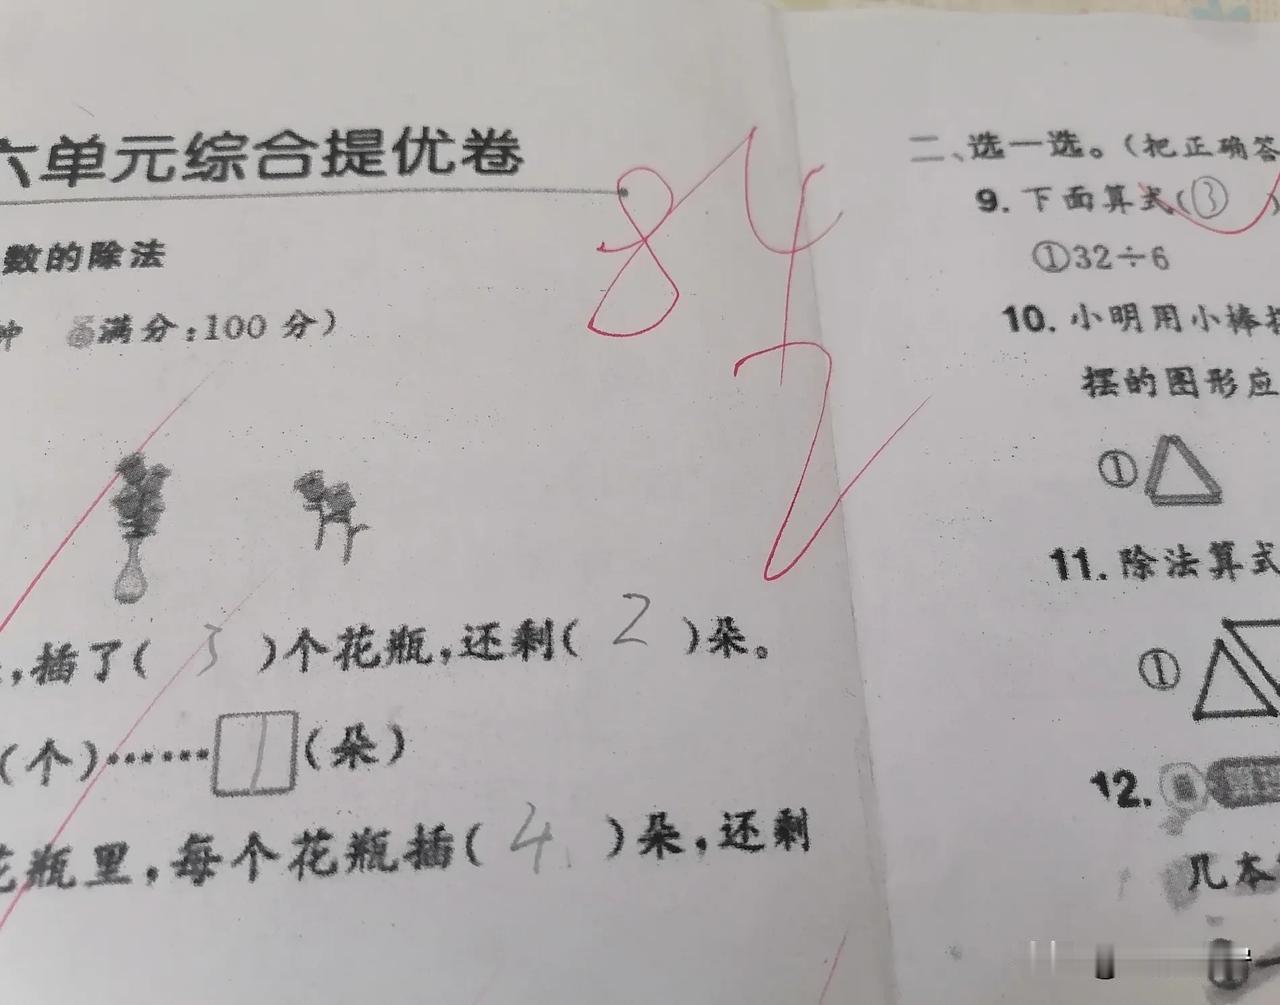 六单元综合提优卷
数的除法
钟 满分:100 分)
84
2
,插了( 3 )个花瓶,还剩( 2 )朵。
(个)……1(朵)
花瓶里,每个花瓶插( 4 )朵,还剩
二、选一选。(把正确答
9. 下面算式(③ )
①32÷6
10. 小明用小棒
摆的图形应
①
11. 除法算式
①
12.
几本
①